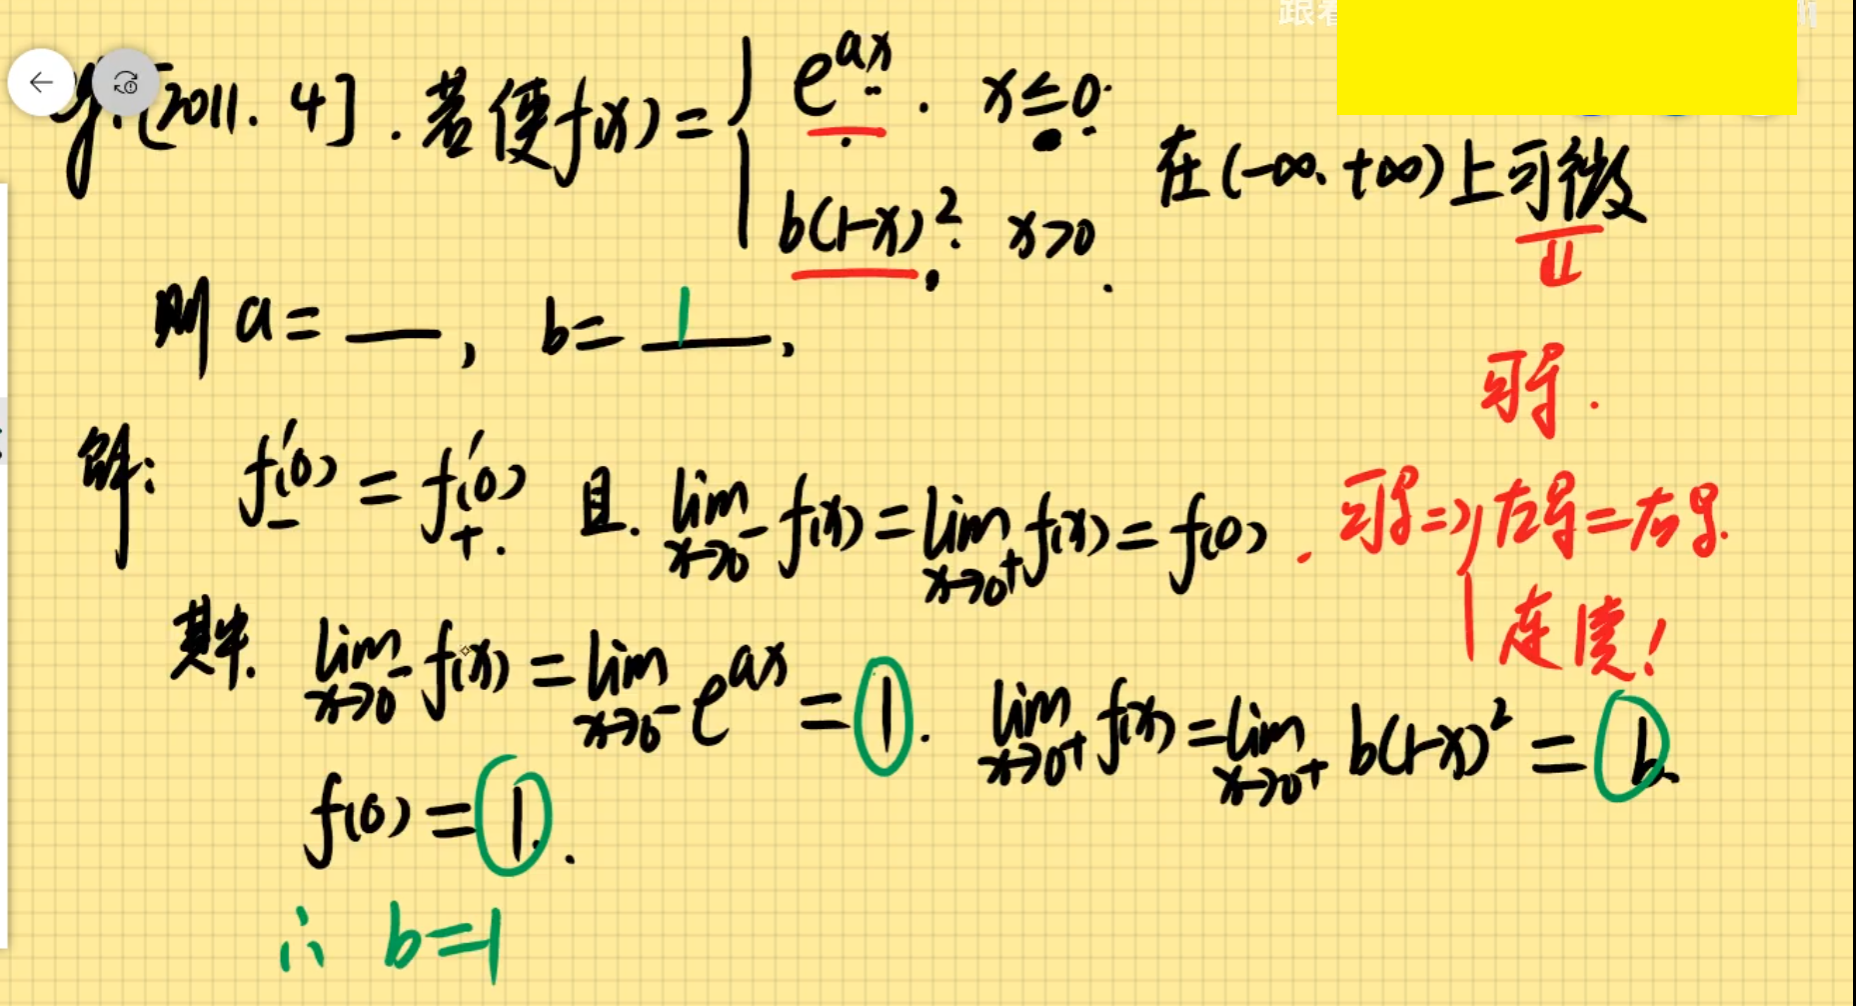 例.[2011.4].若使f(x)={ e^{ax}. x≤0.
b(1-x)^2. x>0.
在(-∞,+∞)上可微
则 a=___, b=_1_.
可导.
解: f'_-(0) = f'_+(0) 且. lim_{x→0^-} f(x) = lim_{x→0^+} f(x) = f(0).
可导=>{ 左导=右导.
连续!
其中. lim_{x→0^-} f(x) = lim_{x→0^-} e^{ax} = 1. lim_{x→0^+} f(x) = lim_{x→0^+} b(1-x)^2 = b.
f(0) = 1.
∴ b=1